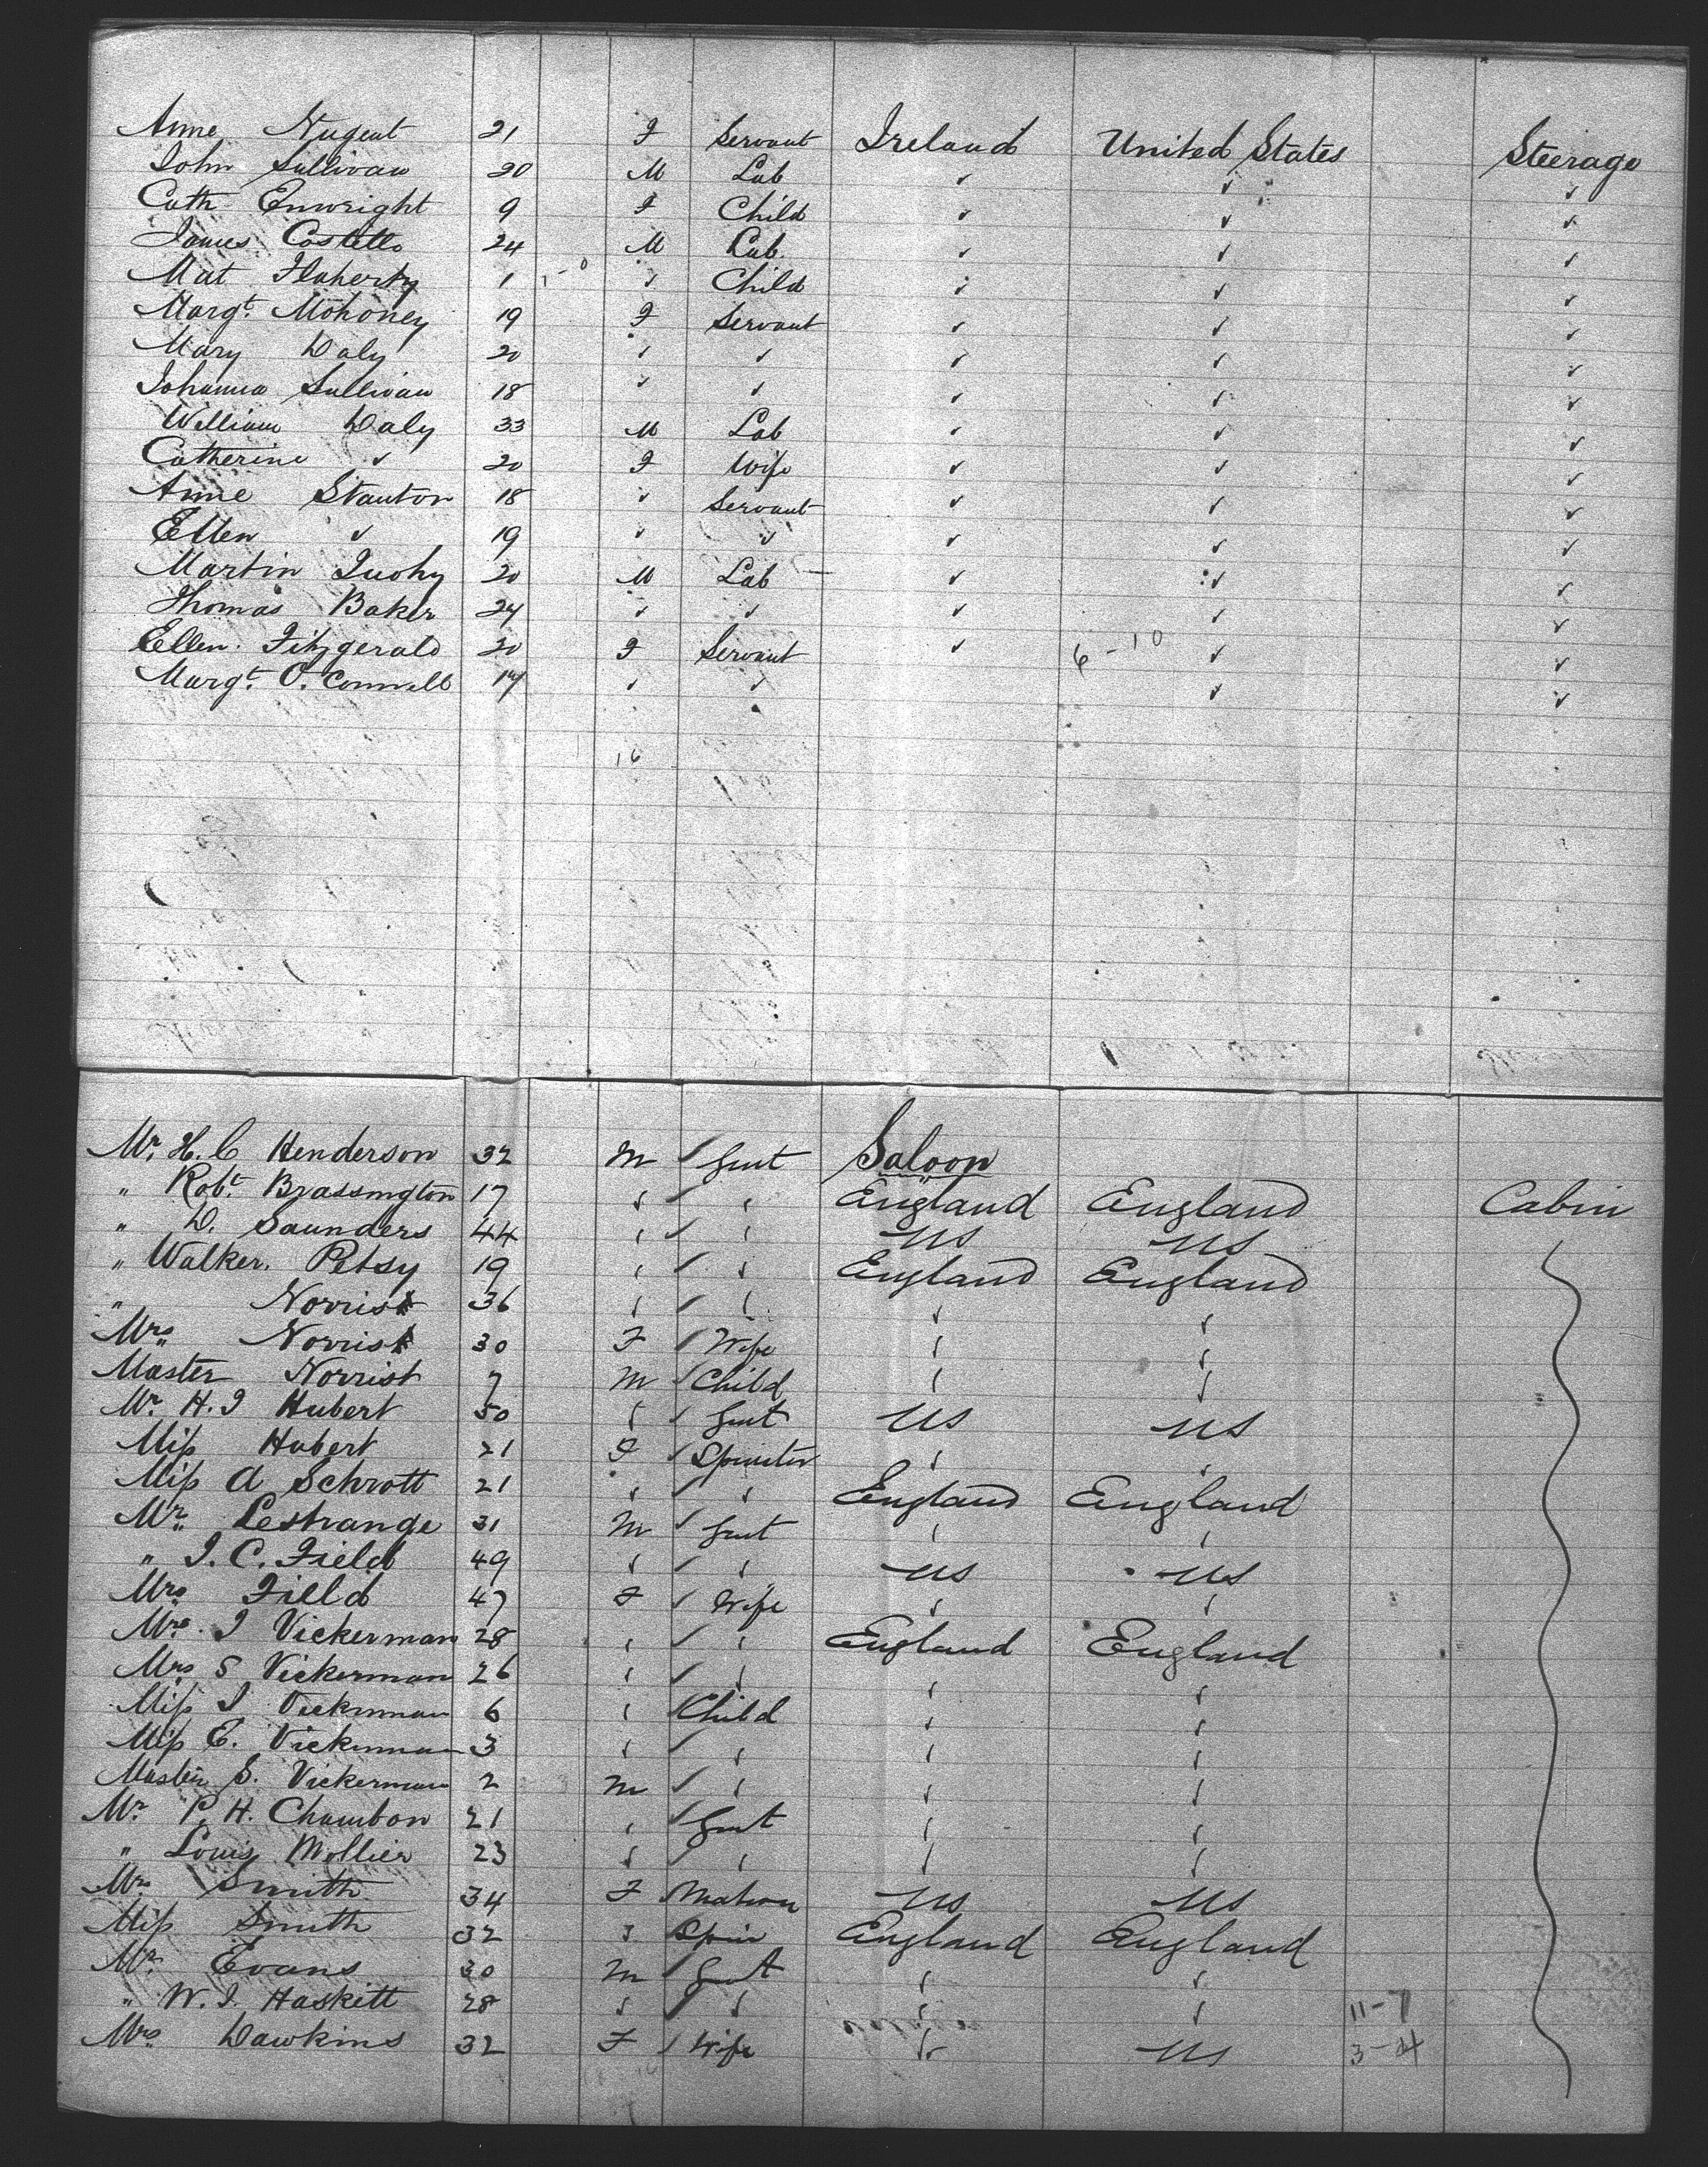 Anne Nugent 21 F Servant Ireland United States Steerage
John Sullivan 20 M Lab ✓ ✓ ✓
Cath Enwright 9 F Child ✓ ✓ ✓
James Costello 24 M Lab. ✓ ✓ ✓
Mat Flaherty 1 1-0 ✓ Child ✓ ✓ ✓
Margt. Mohoney 19 F Servant ✓ ✓ ✓
Mary Daly 20 ✓ ✓ ✓ ✓ ✓
Johanna Sullivan 18 ✓ ✓ ✓ ✓ ✓
William Daly 33 M Lab ✓ ✓ ✓
Catherine ✓ 20 F Wife ✓ ✓ ✓
Anne Stanton 18 ✓ Servant ✓ ✓ ✓
Ellen ✓ 19 ✓ ✓ ✓ ✓ ✓
Martin Tuohy 20 M Lab ✓ ✓ ✓
Thomas Baker 24 ✓ ✓ ✓ ✓ ✓
Ellen Fitzgerald 20 F Servant ✓ 6-10 ✓ ✓
Margt. O. Connell 17 ✓ ✓ ✓ ✓
16
Mr. H. C Henderson 32 M ✓ Gent Saloon
" Robt. Brassington 17 ✓ ✓ ✓ England England Cabin
" D. Saunders 44 ✓ ✓ ✓ US US
" Walker. Petsy 19 ✓ ✓ ✓ England England
" Norris 36 ✓ ✓ ✓ ✓ ✓
Mrs Norris 30 F ✓ Wife ✓ ✓
Master Norrist 7 M ✓ Child ✓ ✓
Mr. H. J Hubert 50 ✓ ✓ Gent US US
Miss Hubert 21 F ✓ Spinster ✓ ✓
Miss A Schrott 21 ✓ ✓ ✓ England England
Mr. Lestrange 31 M ✓ Gent ✓ ✓
" J. C. Field 49 ✓ ✓ ✓ US US
Mrs Field 47 F ✓ Wife ✓ ✓
Mrs. J Vickerman 28 ✓ ✓ ✓ England England
Mrs S Vickerman 26 ✓ ✓ ✓ ✓ ✓
Miss J Vickerman 6 ✓ Child ✓ ✓
Miss E. Vickerman 3 ✓ ✓ ✓ ✓ ✓
Master S. Vickerman 2 M ✓ ✓ ✓ ✓
Mr. P. H. Chambon 21 ✓ ✓ Gent ✓ ✓
" Louis Mollier 23 ✓ ✓ ✓ ✓ ✓
Mrs Smith 34 F ✓ Matron US US
Miss Smith 32 ✓ Spin England England
Mr. Evans 30 M ✓ Gent ✓ ✓
" W. J. Haskett 28 ✓ ✓ ✓ ✓ ✓ 11-7
Mrs Dawkins 32 F ✓ Wife ✓ US 3-4